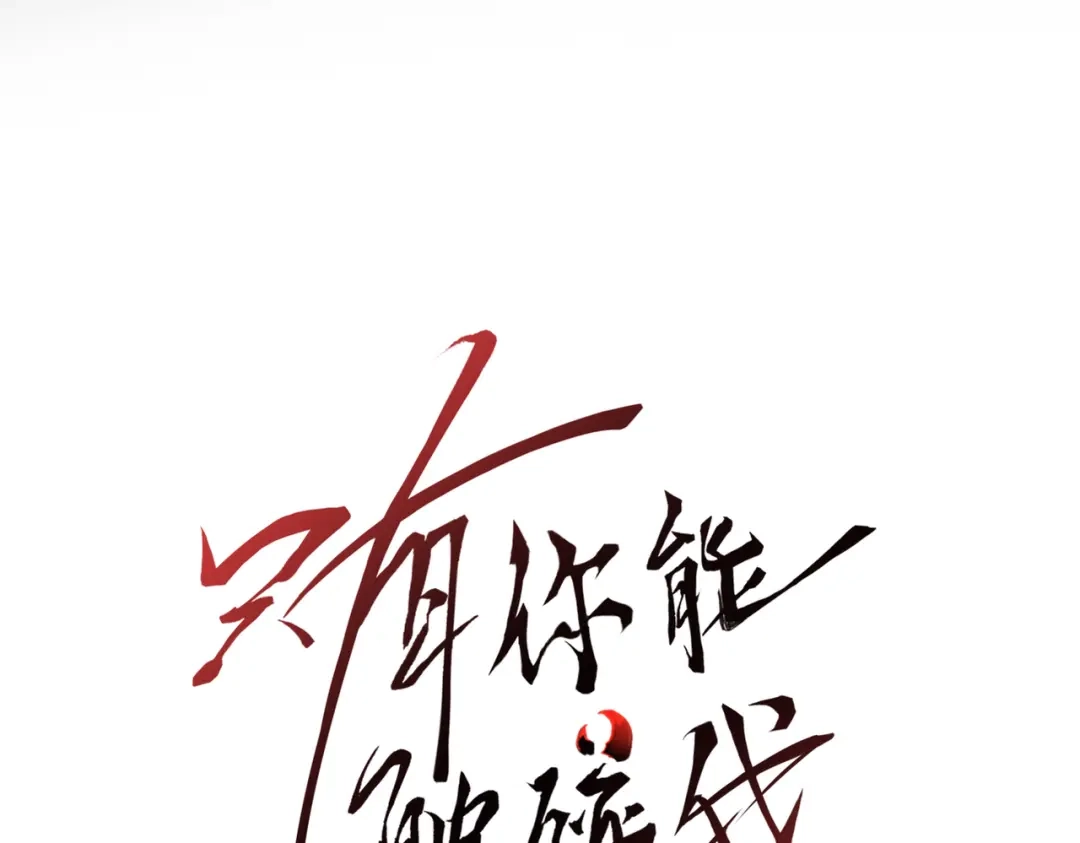 只有你能
触碰我